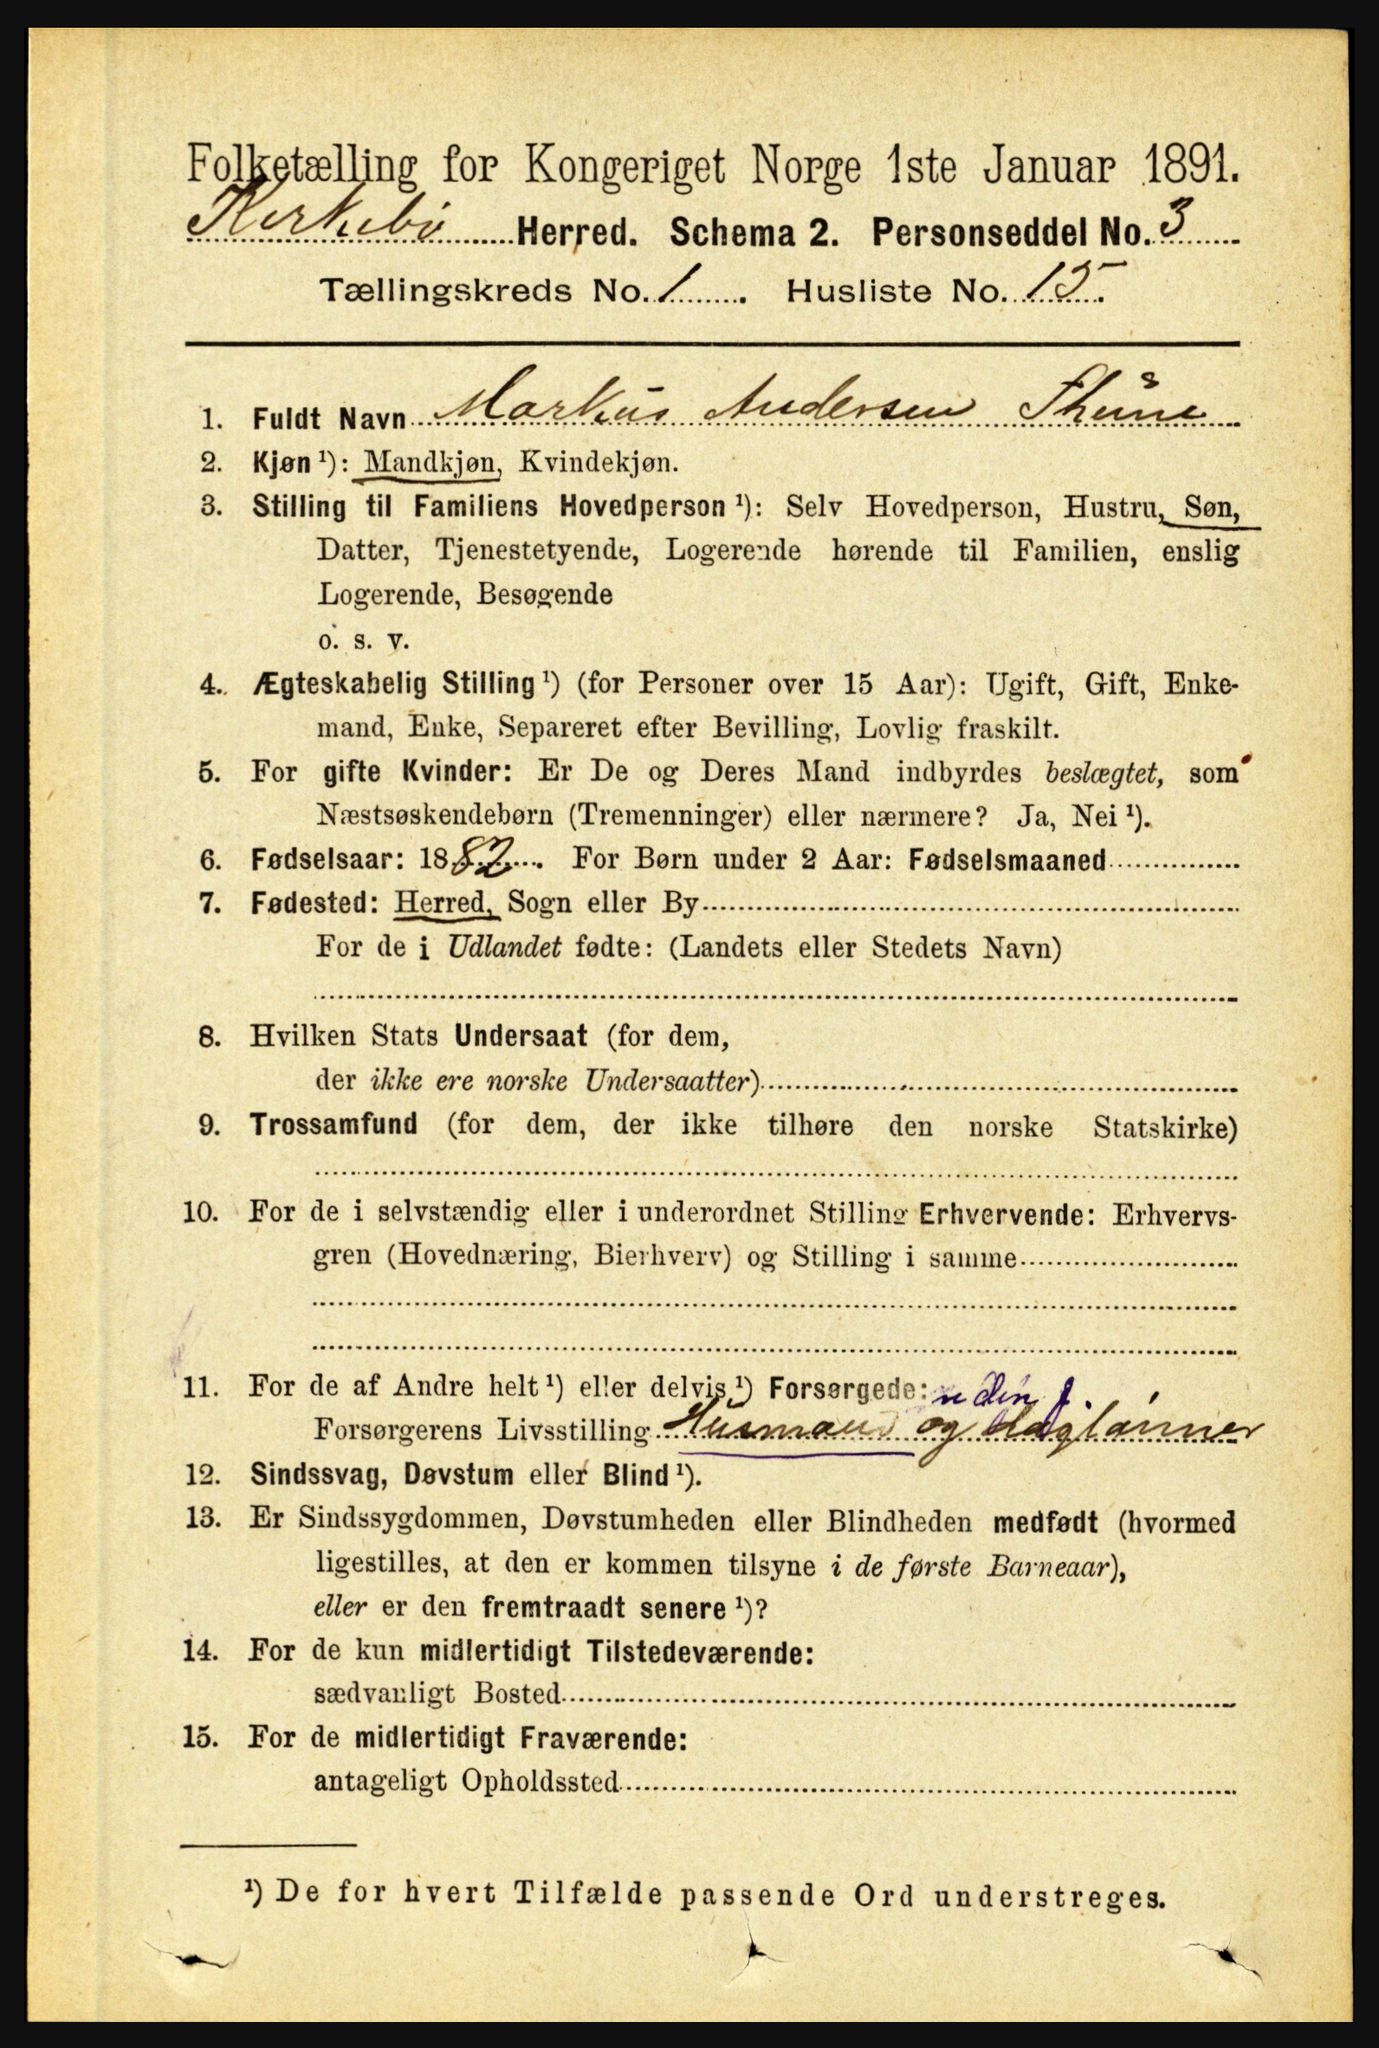 Folketælling for Kongeriget Norge 1ste Januar 1891.
Kirkebø Herred. Schema 2. Personseddel No. 3
Tællingskreds No. 1. Husliste No. 15.
1. Fuldt Navn Markus Andersen Thune
2. Kjøn ¹): Mandkjøn, Kvindekjøn.
3. Stilling til Familiens Hovedperson ¹): Selv Hovedperson, Hustru, Søn,
Datter, Tjenestetyende, Logerende hørende til Familien, enslig
Logerende, Besøgende
o. s. v.
4. Ægteskabelig Stilling ¹) (for Personer over 15 Aar): Ugift, Gift, Enke-
mand, Enke, Separeret efter Bevilling, Lovlig fraskilt.
5. For gifte Kvinder: Er De og Deres Mand indbyrdes beslægtet, som
Næstsøskendebørn (Tremenninger) eller nærmere? Ja, Nei ¹).
6. Fødselsaar: 1882. For Børn under 2 Aar: Fødselsmaaned
7. Fødested: Herred, Sogn eller By
For de i Udlandet fødte: (Landets eller Stedets Navn)
8. Hvilken Stats Undersaat (for dem,
der ikke ere norske Undersaatter)
9. Trossamfund (for dem, der ikke tilhøre den norske Statskirke)
10. For de i selvstændig eller i underordnet Stilling Erhvervende: Erhvervs-
gren (Hovednæring, Bierhverv) og Stilling i samme
11. For de af Andre helt ¹) eller delvis ¹) Forsørgede: uden j.
Forsørgerens Livsstilling Husmand og daglønner
12. Sindssvag, Døvstum eller Blind ¹).
13. Er Sindssygdommen, Døvstumheden eller Blindheden medfødt (hvormed
ligestilles, at den er kommen tilsyne i de første Barneaar),
eller er den fremtraadt senere ¹)?
14. For de kun midlertidigt Tilstedeværende:
sædvanligt Bosted
15. For de midlertidigt Fraværende:
antageligt Opholdssted
¹) De for hvert Tilfælde passende Ord understreges.